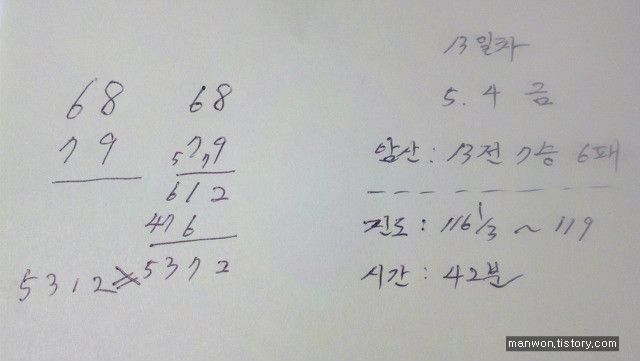 68
79
68
79
57
612
476
5372
5312
13일차
5. 4 금
암산 : 13전 7승 6패
진도 : 116 1/3 ~ 119
시간 : 42분
manwon.tistory.com